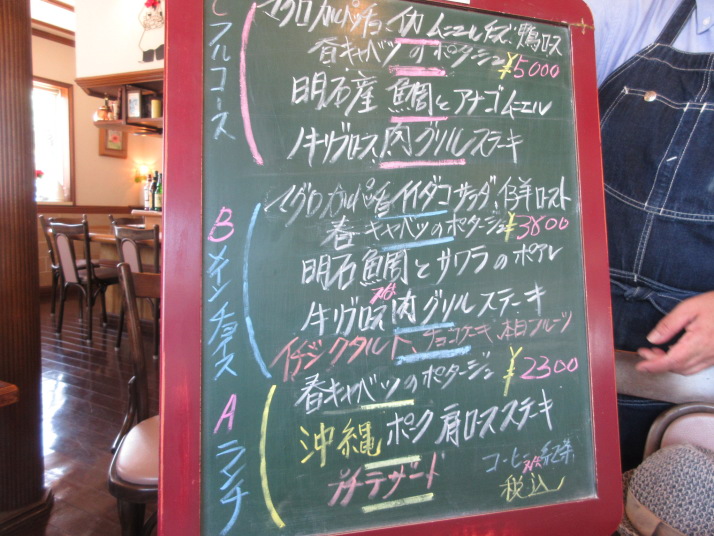 C フルコース
マグロカルパッチョ、イカムニエル、チーズ、鴨ロース
春キャベツのポタージュ ¥5000
明石産 鯛とアナゴムニエル
肉グリルステーキ
B メインチョイス
マグロカルパッチョ イイダコサラダ、仔羊ロースト
春キャベツのポタージュ ¥3800
明石 鯛とサワラのポアレ
又は
牛リブロース 肉グリルステーキ
イチジクタルト、チョコケーキ、本日フルーツ
A ランチ
春キャベツのポタージュ ¥2300
沖縄ポーク肩ロースステーキ
プチデザート
コーヒー又は紅茶
税込